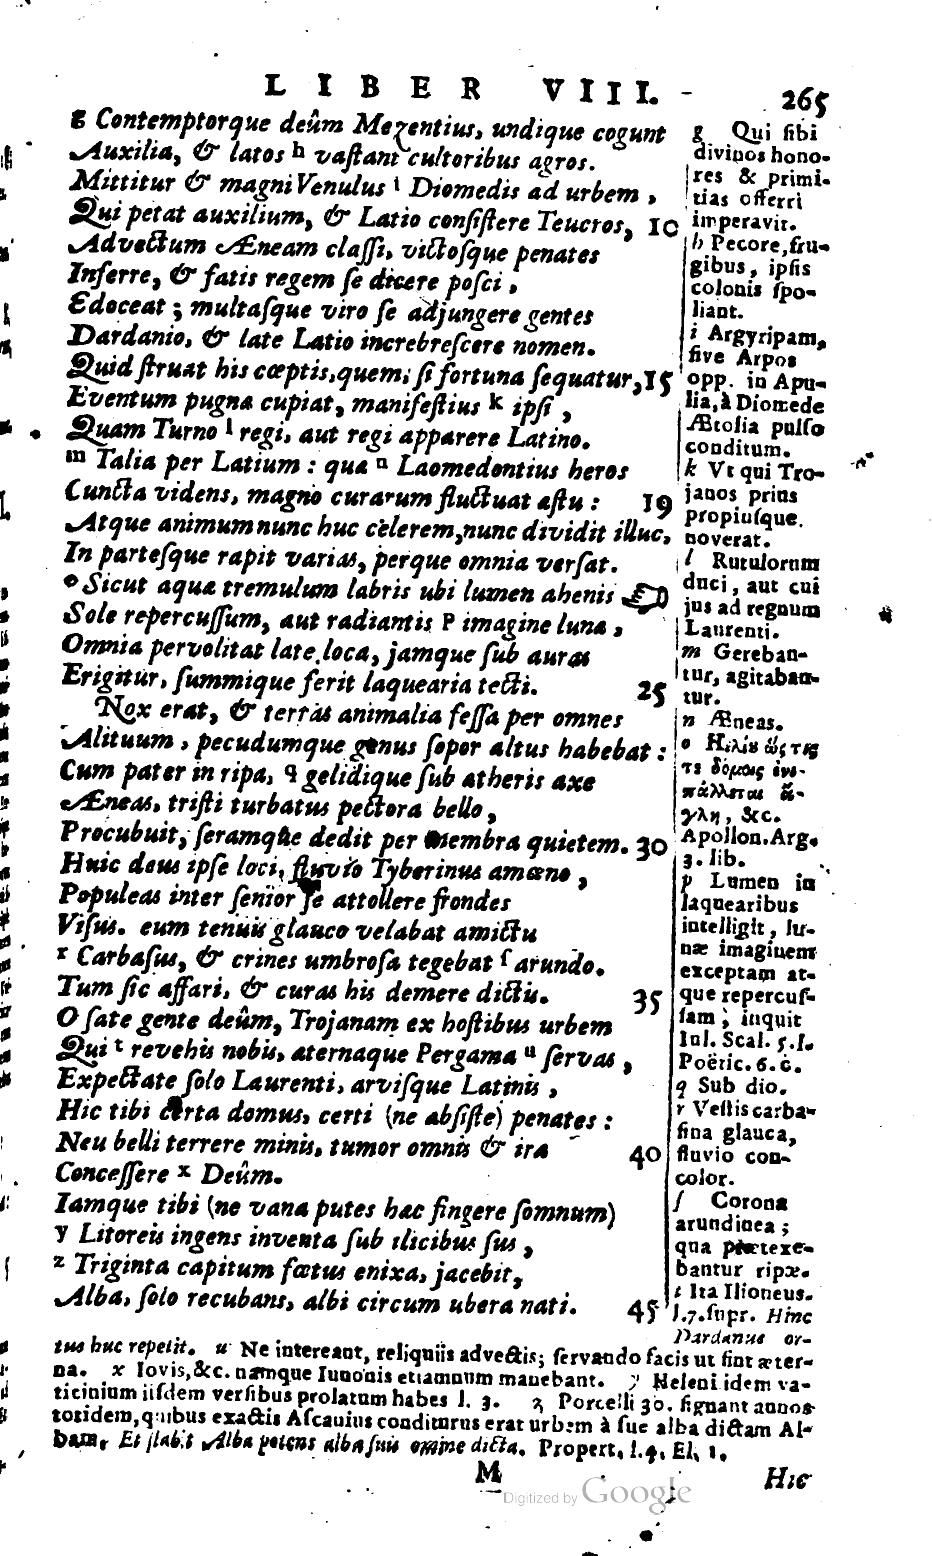 LIBER VIII. - 265
g Contemptorque deûm Mezentius, undique cogunt
Auxilia, & latos h vaſtant cultoribus agros.
Mittitur & magni Venulus i Diomedis ad urbem,
Qui petat auxilium, & Latio conſiſtere Teucros, 10
Advectum Æneam claſſi, victoſque penates
Inferre, & fatis regem ſe dicere poſci,
Edoceat; multaſque viro ſe adjungere gentes
Dardanio, & late Latio increbreſcere nomen.
Quid ſtruat his cœptis, quem, ſi fortuna ſequatur, 15
Eventum pugnæ cupiat, manifeſtius k ipſi,
Quam Turno l regi, aut regi apparere Latino.
m Talia per Latium: quæ n Laomedontius heros
Cuncta videns, magno curarum fluctuat æſtu: 19
Atque animum nunc huc celerem, nunc dividit illuc,
In parteſque rapit varias, perque omnia verſat.
o Sicut aquæ tremulum labris ubi lumen ahenis
Sole repercuſſum, aut radiantis p imagine lunæ,
Omnia pervolitat late loca, jamque ſub auras
Erigitur, ſummique ferit laquearia tecti. 25
Nox erat, & terras animalia feſſa per omnes
Alituum, pecudumque genus ſopor altus habebat:
Cum pater in ripa, q gelidique ſub ætheris axe
Æneas, triſti turbatus pectora bello,
Procubuit, ſeramque dedit per membra quietem. 30
Huic deus ipſe loci, fluvio Tyberinus amœno,
Populeas inter ſenior ſe attollere frondes
Viſus. eum tenuis glauco velabat amictu
r Carbaſus, & crines umbroſa tegebat ſ arundo.
Tum ſic affari, & curas his demere dictis. 35
O ſate gente deûm, Trojanam ex hoſtibus urbem
Qui t revehis nobis, æternaque Pergama u ſervas,
Expectate ſolo Laurenti, arviſque Latinis,
Hic tibi certa domus, certi (ne abſiſte) penates:
Neu belli terrere minis, tumor omnis & iræ 40
Conceſſere x Deûm.
Iamque tibi (ne vana putes hæc fingere ſomnum)
y Litoreis ingens inventa ſub ilicibus ſus,
z Triginta capitum fœtus enixa, jacebit,
Alba, ſolo recubans, albi circum ubera nati. 45
g Qui ſibi
divinos hono-
res & primi-
tias offerri
imperavit.
h Pecore, fru-
gibus, ipſis
colonis ſpo-
liant.
i Argyripam,
ſive Arpos
opp. in Apu-
lia, à Diomede
Ætolia pulſo
conditum.
k Vt qui Tro-
janos prius
propiuſque
noverat.
l Rutulorum
duci, aut cui
jus ad regnum
Laurenti.
m Gereban-
tur, agitaban-
tur.
n Æneas.
o Ἠελίου ὥς τις
τε δόμοις ἐνι-
πάλλεται αἴ-
γλη, &c.
Apollon. Arg.
3. lib.
p Lumen in
laquearibus
intelligit, lu-
næ imaginem
exceptam at-
que repercuſ-
ſam; inquit
Iul. Scal. 5. l.
Poëtic. 6. c.
q Sub dio.
r Veſtis carba-
ſina glauca,
fluvio con-
color.
ſ Corona
arundinea;
qua prætexe-
bantur ripæ.
t Ita Ilioneus.
l. 7. ſupr. Hinc
Dardanus or-
tus huc repetit. u Ne intereant, reliquiis advectis; ſervando facis ut ſint æter-
na. x Iovis, &c. namque Iunonis etiamnum manebant. y Heleni idem va-
ticinium iiſdem verſibus prolatum habes l. 3. z Porcelli 30. ſignant annos
totidem, quibus exactis Aſcanius conditurus erat urbem à ſue alba dictam Al-
bam. Et ſtabit Alba potens alba ſuis omine dicta. Propert. l. 4. El. 1.
M Hic
Digitized by Google